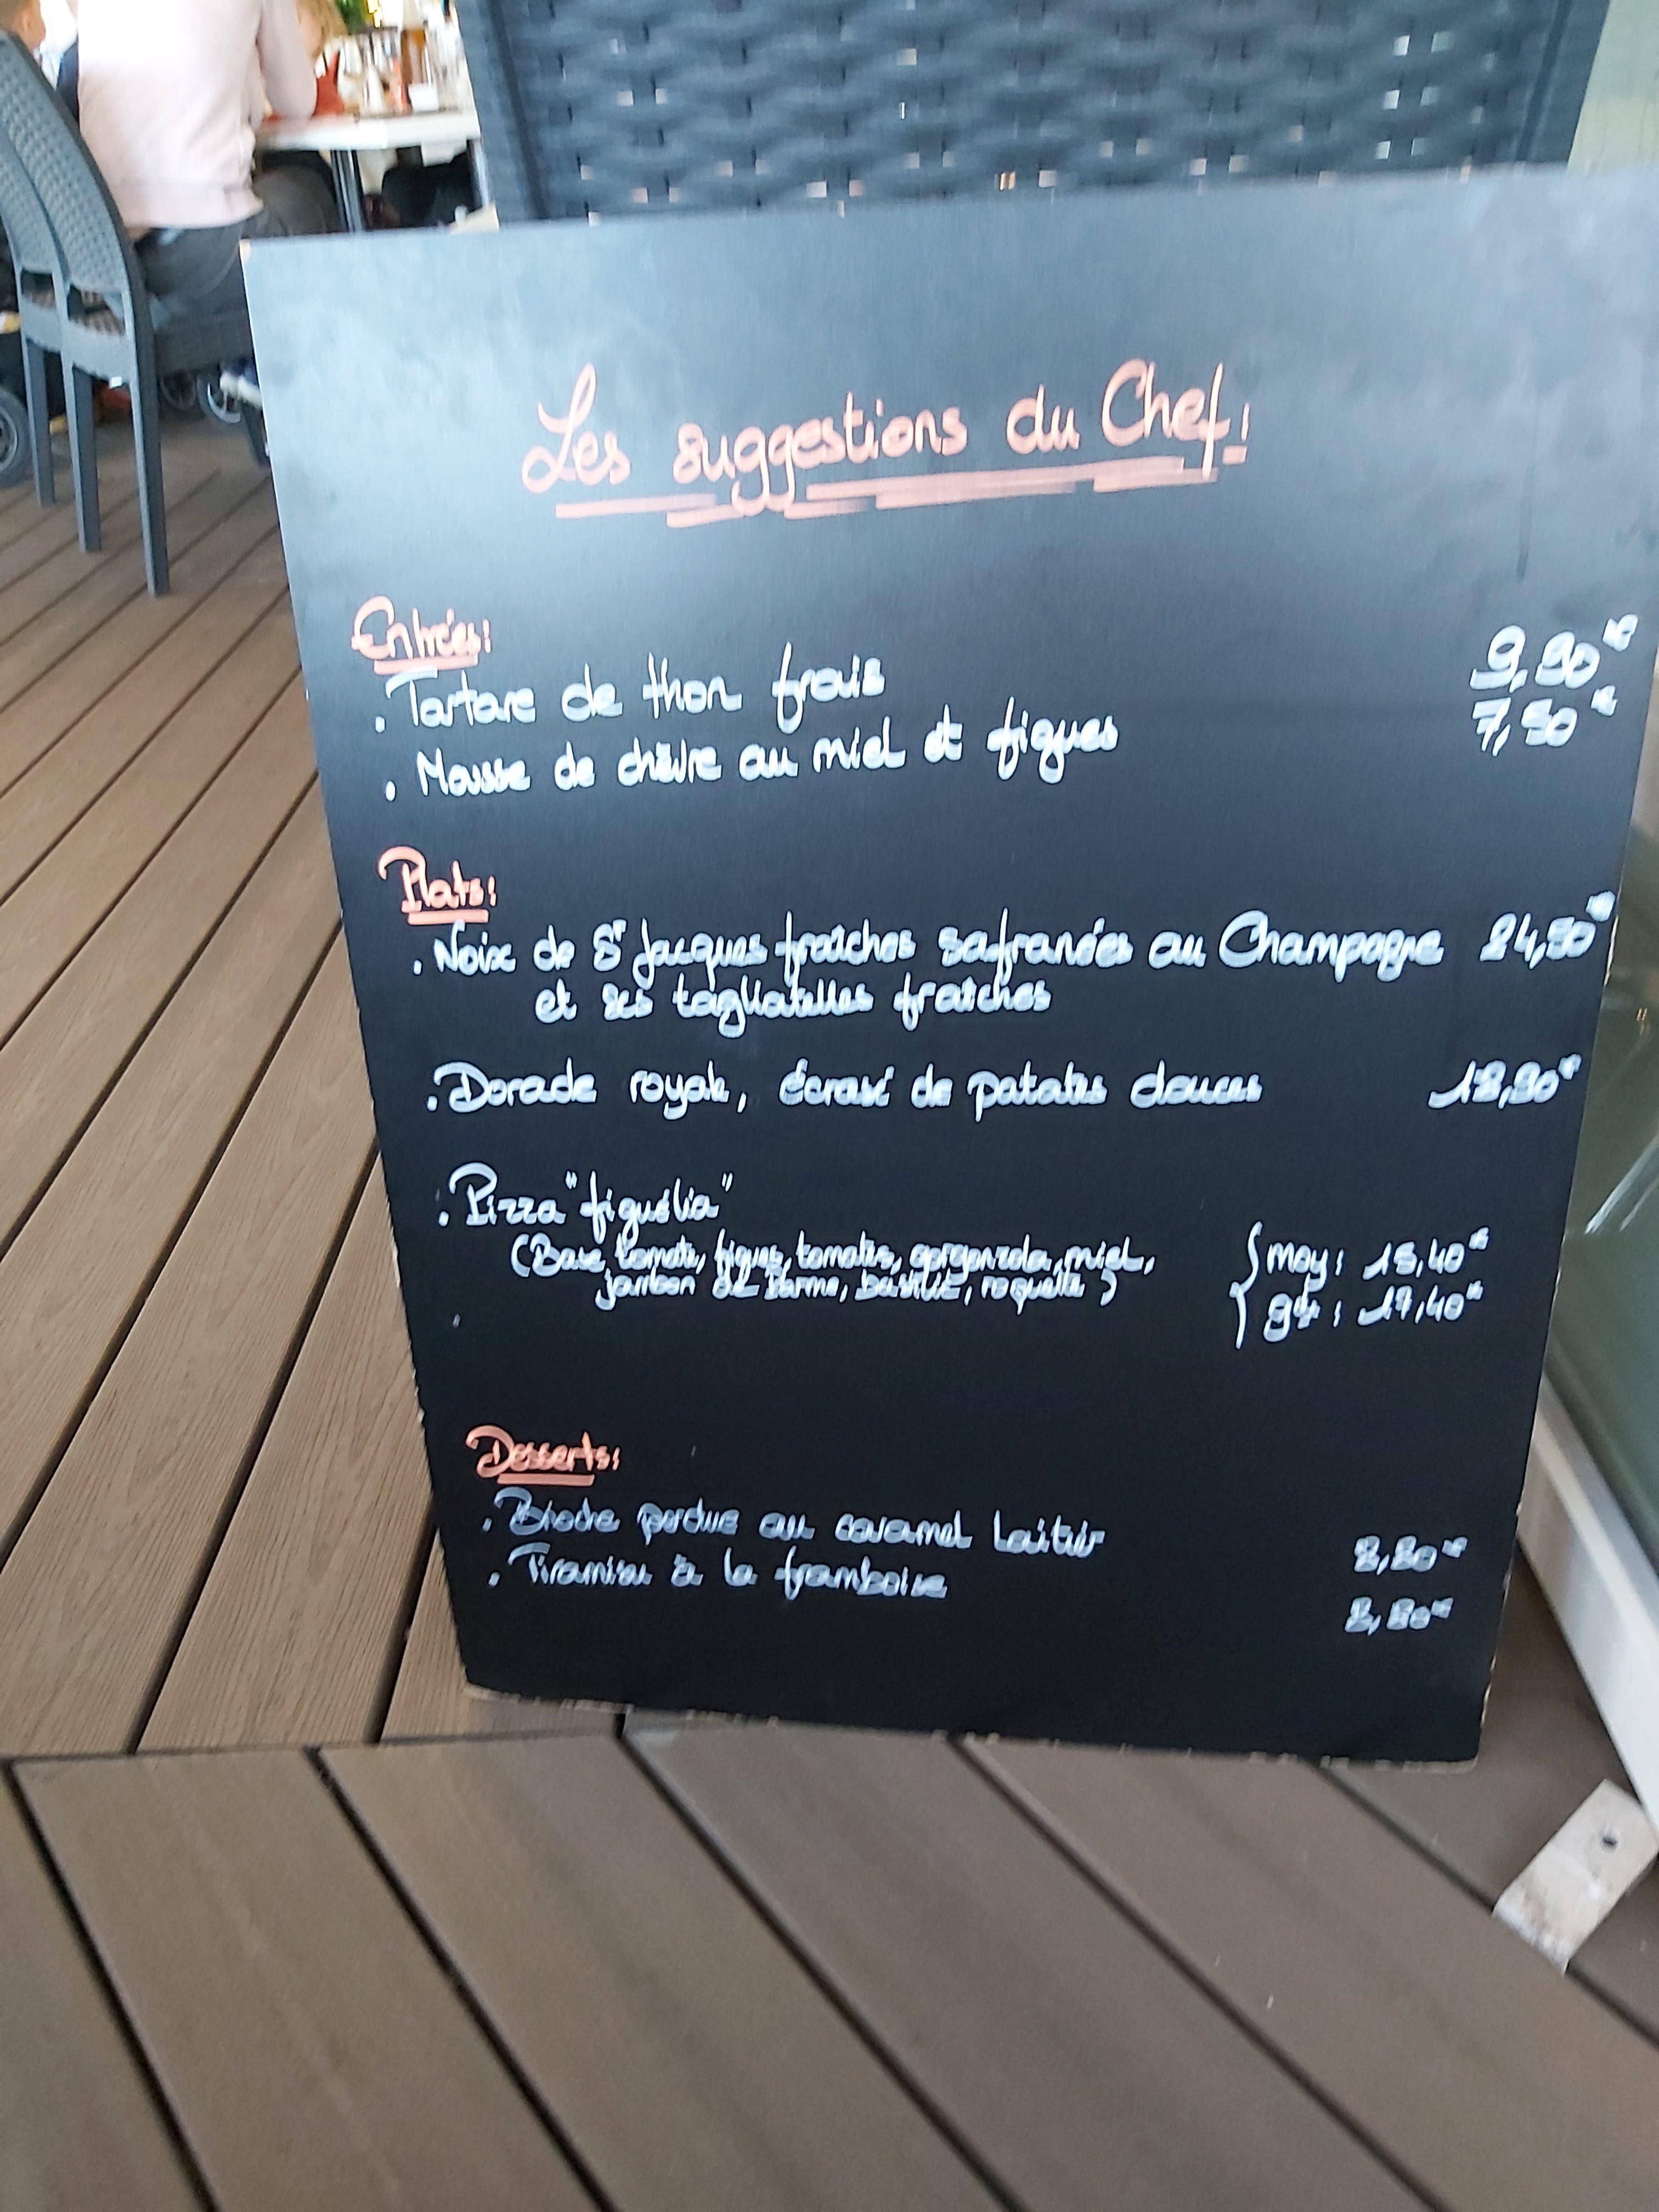 Les suggestions du Chef!
Entrées:
. Tartare de thon frais 9,90€
. Mousse de chèvre au miel et figues 7,90€
Plats:
. Noix de St Jacques fraîches safranées au Champagne 24,90€
et ses tagliatelles fraîches
. Dorade royale, écrasé de patates douces
. Pizza "figuélia"
(Base tomate, figues, tomates, gorgonzola, miel, { moy: 15,40€
jambon de Parme, basilic, roquette) gr: 17,40€
Desserts:
. Brioche perdue au caramel laitier
. Tiramisu à la framboise